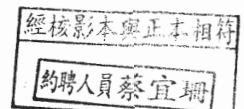 經核影本與正本相符
約聘人員蔡宜珊